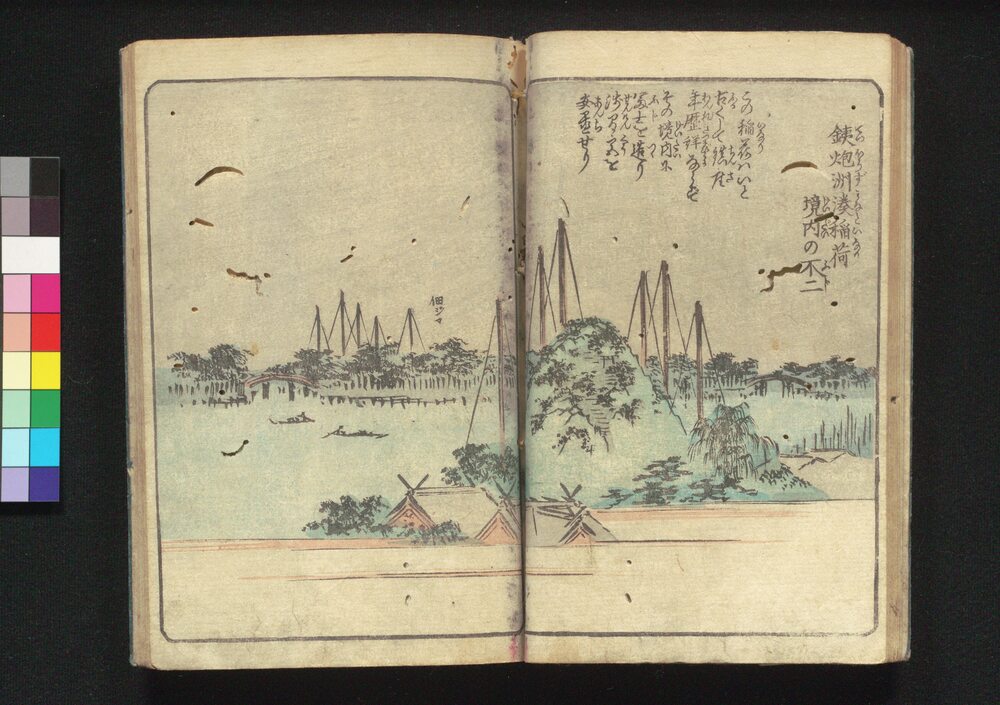 鉄炮洲湊稲荷
境内の不二
この稲荷ハいと
古くして鎮座
年歴詳ならず
その境内に
冨士を造り
浅間宮を
安置せり
佃ジマ